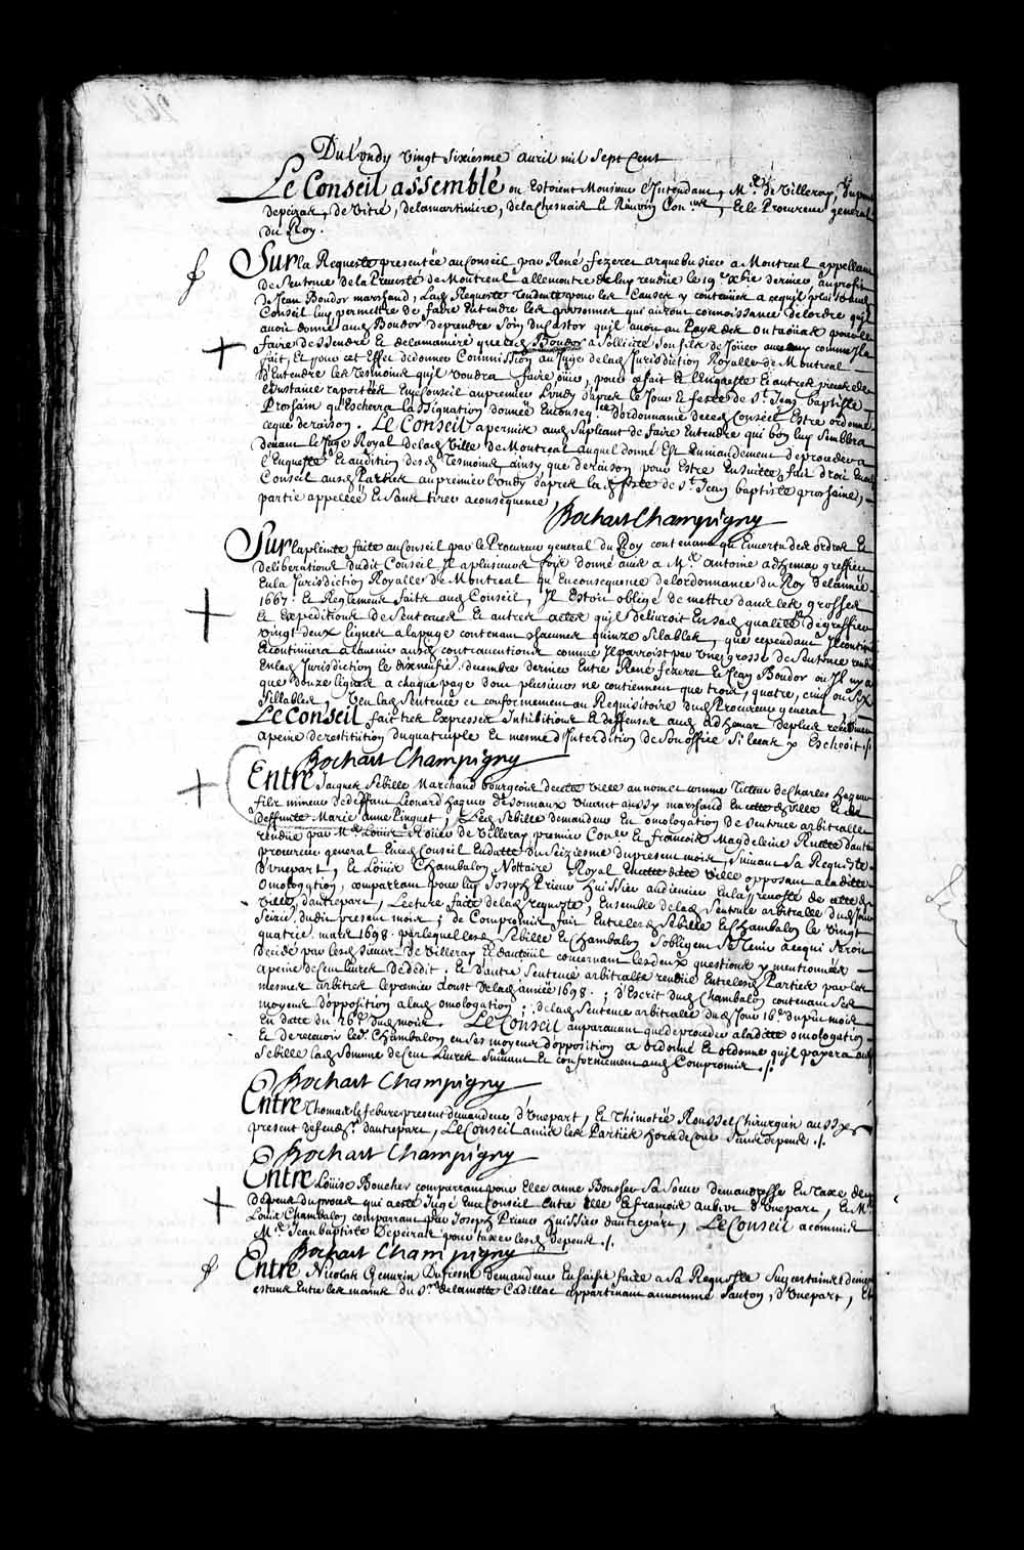 Du Lundy vingt sixiesme avril mil sept cent
Le Conseil assemblé ou Estoient Monsieur l'Intendant, Mre de Villeray, Dupont
depeiras, de Vitré, delamartiniere, delaChesnais Et Riuvrin Conrs, Et le Procureur general
du Roy.
Sur la Requeste presentée au Conseil par René fezeret arquebusier a Montreal appellant
de Sentence de la Prevosté de Montreal allencontre de luy rendüe le 19e xbre dernier au profit
de Jean Boudor marchand, Lad Requeste tendante pour les Causes y contenües a cequ'il plust aud
Conseil luy permettre de faire Entendre les personnes qui auront connoissance de lordre qu'il
avoit donné aud Boudor de prendre Soin du Castor qu'il avoit au Pays des outaouak pour le
faire dessendre Et de la maniere que led Boudor a Sollicité Son fils de Joüer avec luy comme Il a
fait, Et pour cet Effet de donner Commission au Juge de lad Jurisdiction Royalle de Montreal
d'Entendre les tesmoins qu'il voudra faire oüir, pour ce fait Et l'Enqueste Et autres pieces de
l'Instance raportées Enced Conseil au premier Lundy d'aprés le Jour Et feste de St Jean baptiste
Prochain qu'Escherra lassignation donnée En conseqce d'ordonnance dud Conseil Estre ordonné
ce que de raison. Le Conseil a permis aud Supliant de faire Entendre qui bon luy Semblera
devant le Juge Royal de lad Ville de Montreal auquel donné Est Mandement de proceder a
l'Enqueste Et audition desd Tesmoins ainsy que de raison pour Estre En suitte fait droit En ced
Conseil ausd Parties au premier Lundy d'aprés lad feste de St Jean baptiste prochaine,
partie appellée Et Sans tirer a consequence,
Bochart Champigny
Sur la plainte faite au Conseil par le Procureur general du Roy contenant qu'En vertu des ordres Et
deliberations dudit Conseil Il a plusieurs fois donné avis a Mre Antoine adhemar greffier
En la Jurisdiction Royalle de Montreal qu'En consequence de lordonnance du Roy de lannée
1667. Et Reglemens faits aud Conseil, Il Estoit obligé de mettre dans les grosses
Et Expeditions de Sentences Et autres actes qu'il delivroit En sad qualité de greffier
Vingt deux lignes a la page contenant chacune quinze Silables, que cependant Il contin
Et continüera a lavenir ausd contraventions comme Il paroist par vne grosse de Sentence rendüe
En lad Jurisdiction le dixneufie decembre dernier Entre René fezeret Et Jean Boudor ou Il n'y a
que douze lignes a chaque page dont plusieurs ne contiennent que trois, quatre, cinq ou Six
Sillables, Veu lad Sentence Et conformement au Requisitoire dud Procureur general
Le Conseil fait tres Expresses Inhibitions Et deffenses aud Adhemar de plus
a peine de restitution du quatruple Et mesme d'Interdition de Son office Si le cas y Escheoit ./.
Bochart Champigny
Entre Jacques Sebille Marchand bourgeois de cette ville au nom et comme Tuteur de Charles
fils mineur de deffunt Leonard Vivant aussy marchand En cette dville Et de
deffunte Marie Anne Pinguet, Led Sebille demandeur En omologation de Sentence arbitralle
rendüe par Mre Loüis Roüer de Villeray premier Coner Et francois Magdeleine Ruette d'auteüil
procureur general En ced Conseil En datte du Seiziesme du present mois, Suivant Sa Requeste
d'vne part, Et Loüis Chambalon Nottaire Royal En cette dite ville opposant a ladite
omologation, comparant pour luy Joseph Prieur huissier audiencier En la prevosté de cette d
Ville, dautre part, Lecture faite de lad requeste, Ensemble de lad Sentence arbitralle dud Jour
Seizie dudit present mois; de Compromis fait Entre lesd Sebille Et Chambalon le vingt
quatrie mars 1698. par lequel lesd Sebille Et Chambalon S'obligent de Tenir a ce qui Seroit
decidé par lesd Sieurs de Villeray Et dauteüil concernant les deux questions y mentionnées
a peine de Cent livres de dedit. Et d'autre Sentence arbitralle rendüe Entre lesd Parties par les
mesmes arbitres le premier Aoust de lad année 1698.; d'Escrit dud Chambalon contenant Ses
moyens d'opposition a lad omologation; de lad Sentence arbitralle dud Jour 16e du pnt mois
En datte du 26e dud mois. Le Conseil auparavant que de proceder a ladite omologation
Et de recevoir led Chambalon en ses moyens d'opposition a ordonné Et ordonne qu'il payera aud
Sebille lad Somme de Cent Livres Suivant Et conformement aud Compromis ./.
Bochart Champigny
Entre Thomas lefebvre present demandeur d'vne part, Et Thimotée Roussel Chirurgien aussy
present defendr dautre part, Le Conseil a mis les Parties hors de Cour Sans depens ./.
Bochart Champigny
Entre Loüise Boucher comparant pour Elle anne Boucher Sa Soeur demanderesse En taxe de
depens du proces qui a esté Jugé En ce Conseil Entre Elle Et francois aubert d'vne part, Et Mre
Louis Chambalon comparant par Joseph Prieur huissier dautre part, Le Conseil a commis
Mre Jean baptiste Depeiras pour taxer lesd depens ./.
Bochart Champigny
Entre Nicolas Dufresne demandeur En saisie faite a Sa Requeste Sur certains deniers
estans Entre les mains du Sr delamotte Cadillac appartenant au nommé Santon, d'vne part, Et